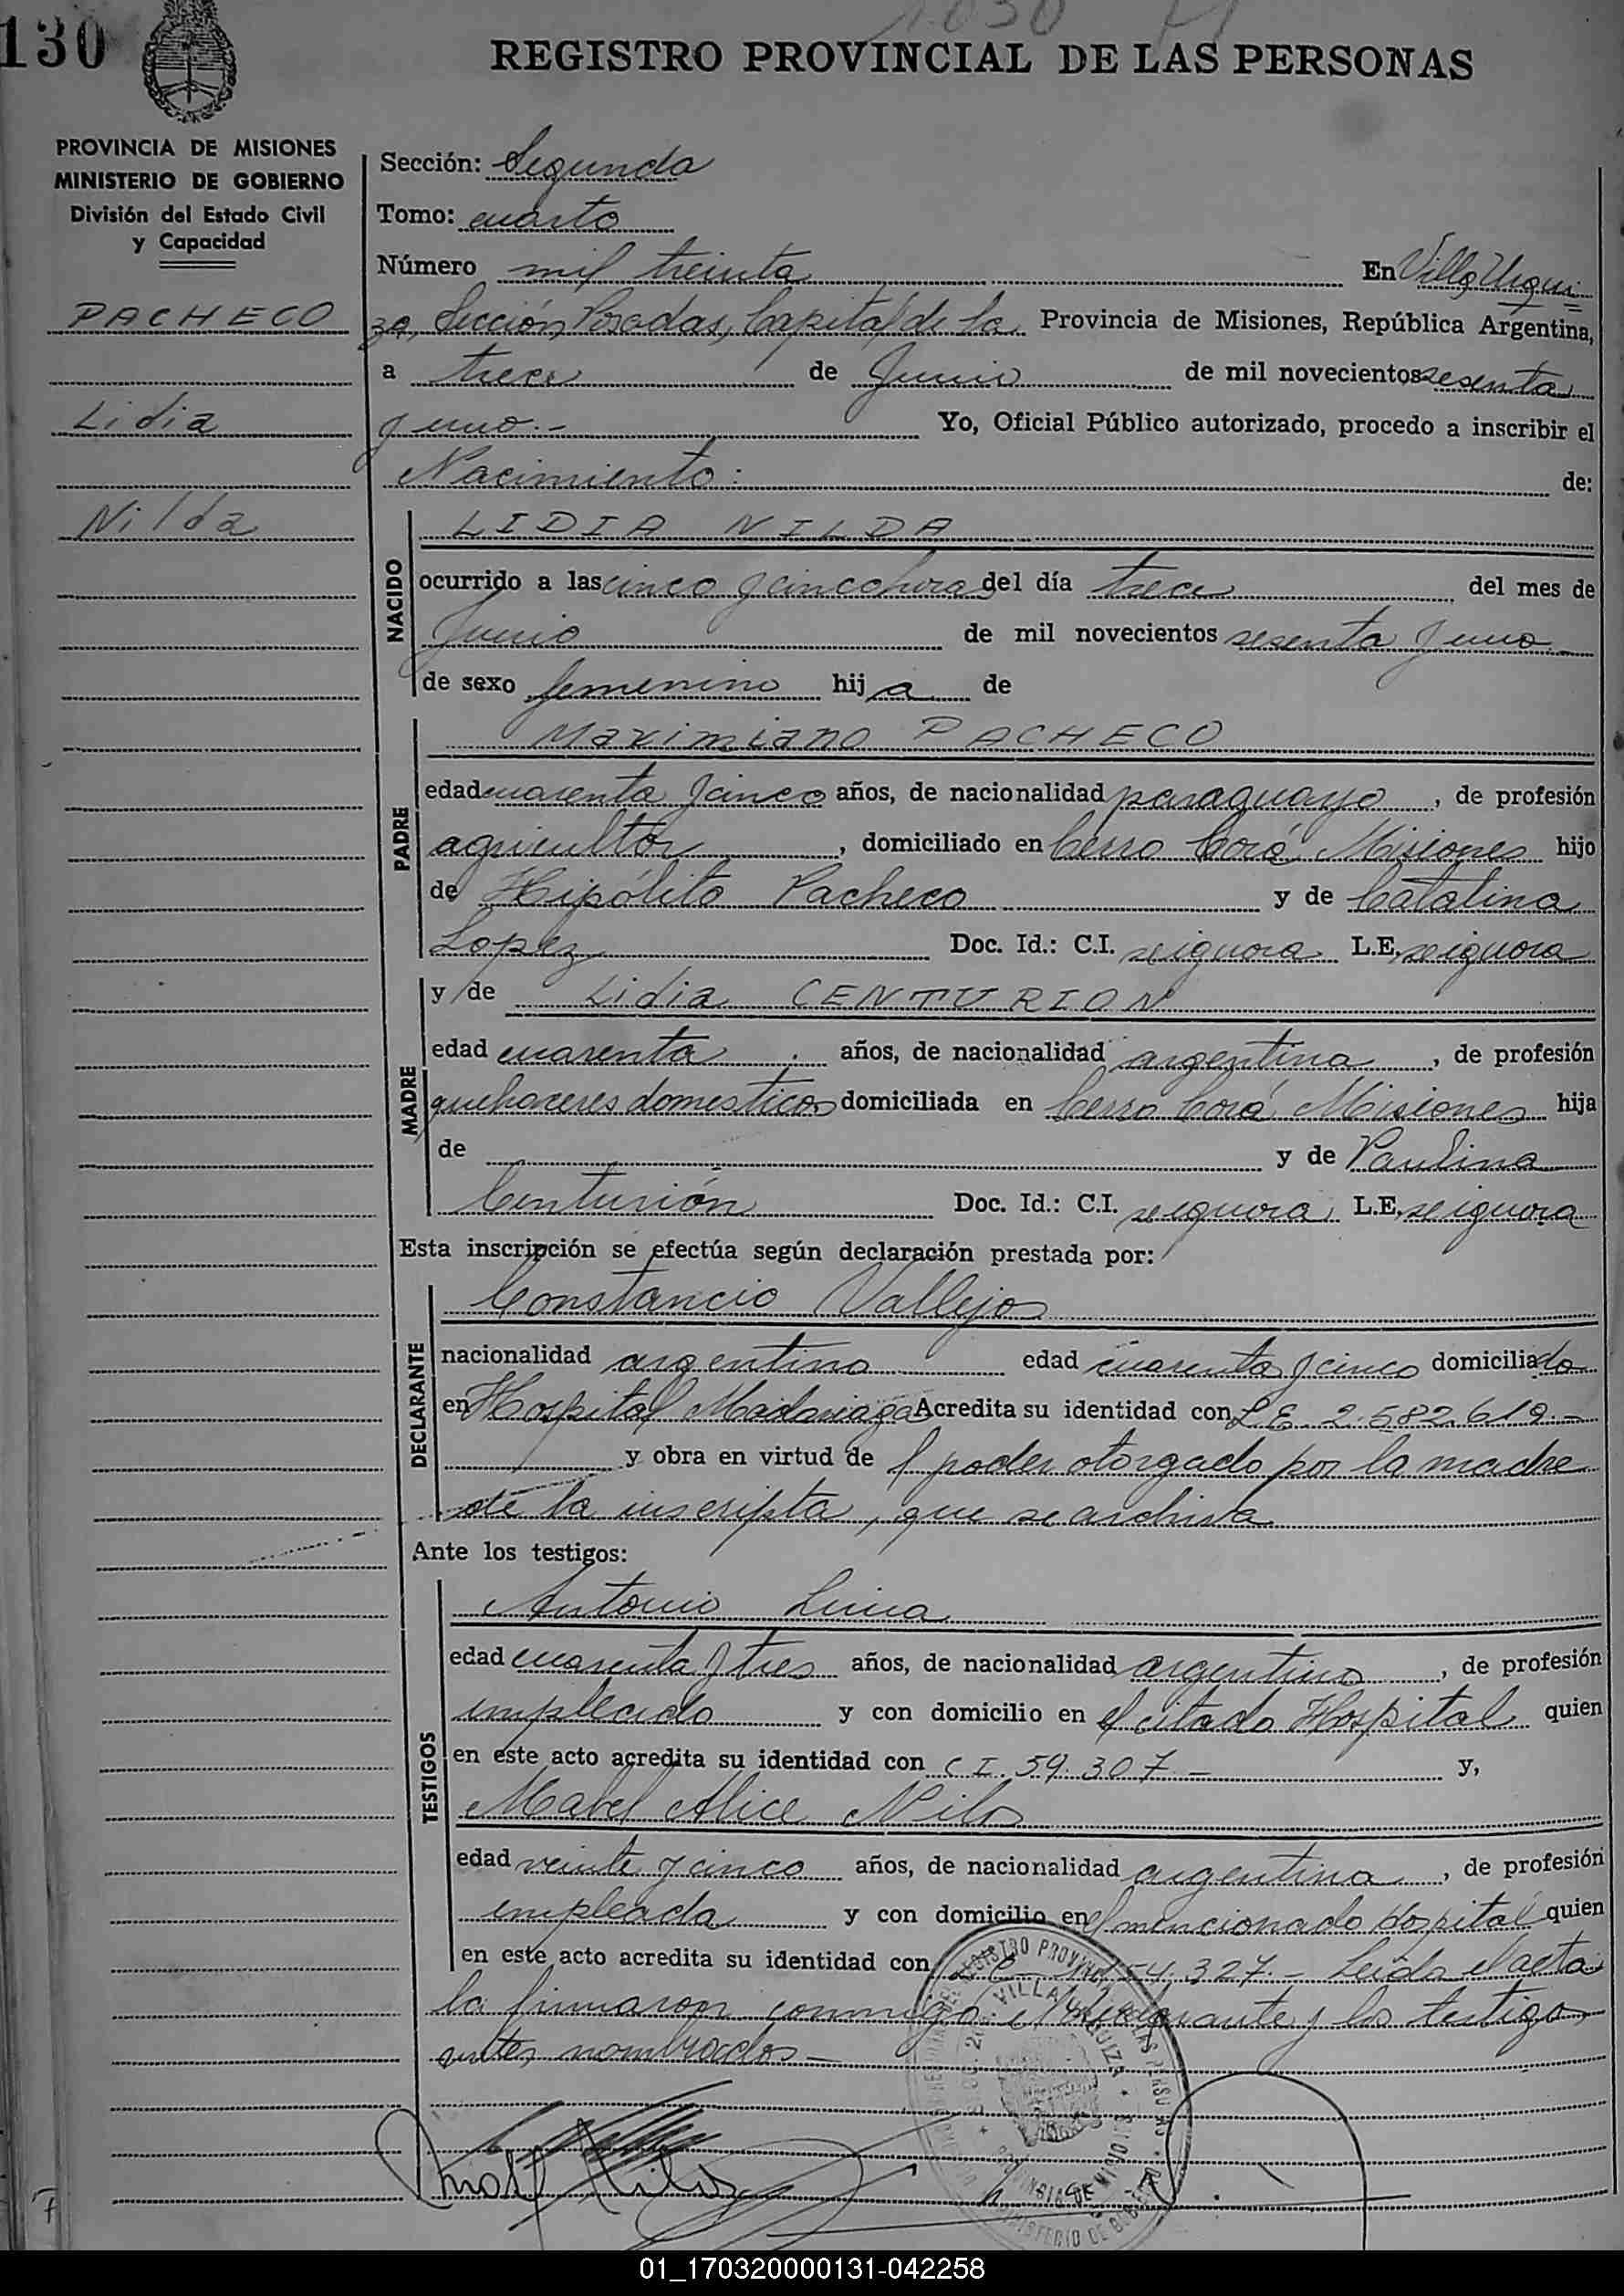 130
1030
REGISTRO PROVINCIAL DE LAS PERSONAS
PROVINCIA DE MISIONES
MINISTERIO DE GOBIERNO
División del Estado Civil
y Capacidad
PACHECO
Lidia
Nilda
Sección: Segunda
Tomo: cuarto
Número mil treinta En Villa Urqui
za, Sección, Posadas, Capital de la Provincia de Misiones, República Argentina,
a trece de Junio de mil novecientos sesenta
y uno.- Yo, Oficial Público autorizado, procedo a inscribir el
Nacimiento: de:
NACIDO
LIDIA NILDA
ocurrido a las cinco y cinco horas del día trece del mes de
Junio de mil novecientos sesenta y uno
de sexo femenino hija de
PADRE
Maximiano PACHECO
edad cuarenta y cinco años, de nacionalidad paraguayo, de profesión
agricultor, domiciliado en Cerro Corá Misiones hijo
de Hipólito Pacheco y de Catalina
Lopez Doc. Id.: C.I. se ignora L.E. se ignora
MADRE
y de Lidia CENTURION
edad cuarenta años, de nacionalidad argentina, de profesión
quehaceres domesticos domiciliada en Cerro Corá Misiones hija
de y de Paulina
Centurión Doc. Id.: C.I. se ignora L.E. se ignora
Esta inscripción se efectúa según declaración prestada por:
DECLARANTE
Constancio Vallejos
nacionalidad argentino edad cuarenta y cinco domiciliado
en Hospital Madariaga Acredita su identidad con L.E. 2.582.619.-
y obra en virtud de l poder otorgado por la madre
de la inscripta, que se archiva
Ante los testigos:
TESTIGOS
Antonio
edad cuarenta y tres años, de nacionalidad argentino, de profesión
empleado y con domicilio en el citado Hospital quien
en este acto acredita su identidad con C I. 59.307 - y,
Mabel Alice Nilos
edad veinte y cinco años, de nacionalidad argentina, de profesión
empleada y con domicilio en el mencionado Hospital quien
en este acto acredita su identidad con 54.327.- Leída el acta
la firmaron conmigo el declarante y los testigos
antes nombrados -
01_170320000131-042258